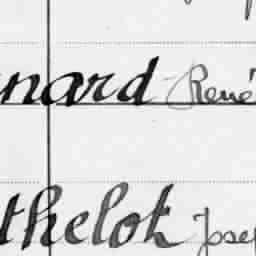 nard René
thelot Josep